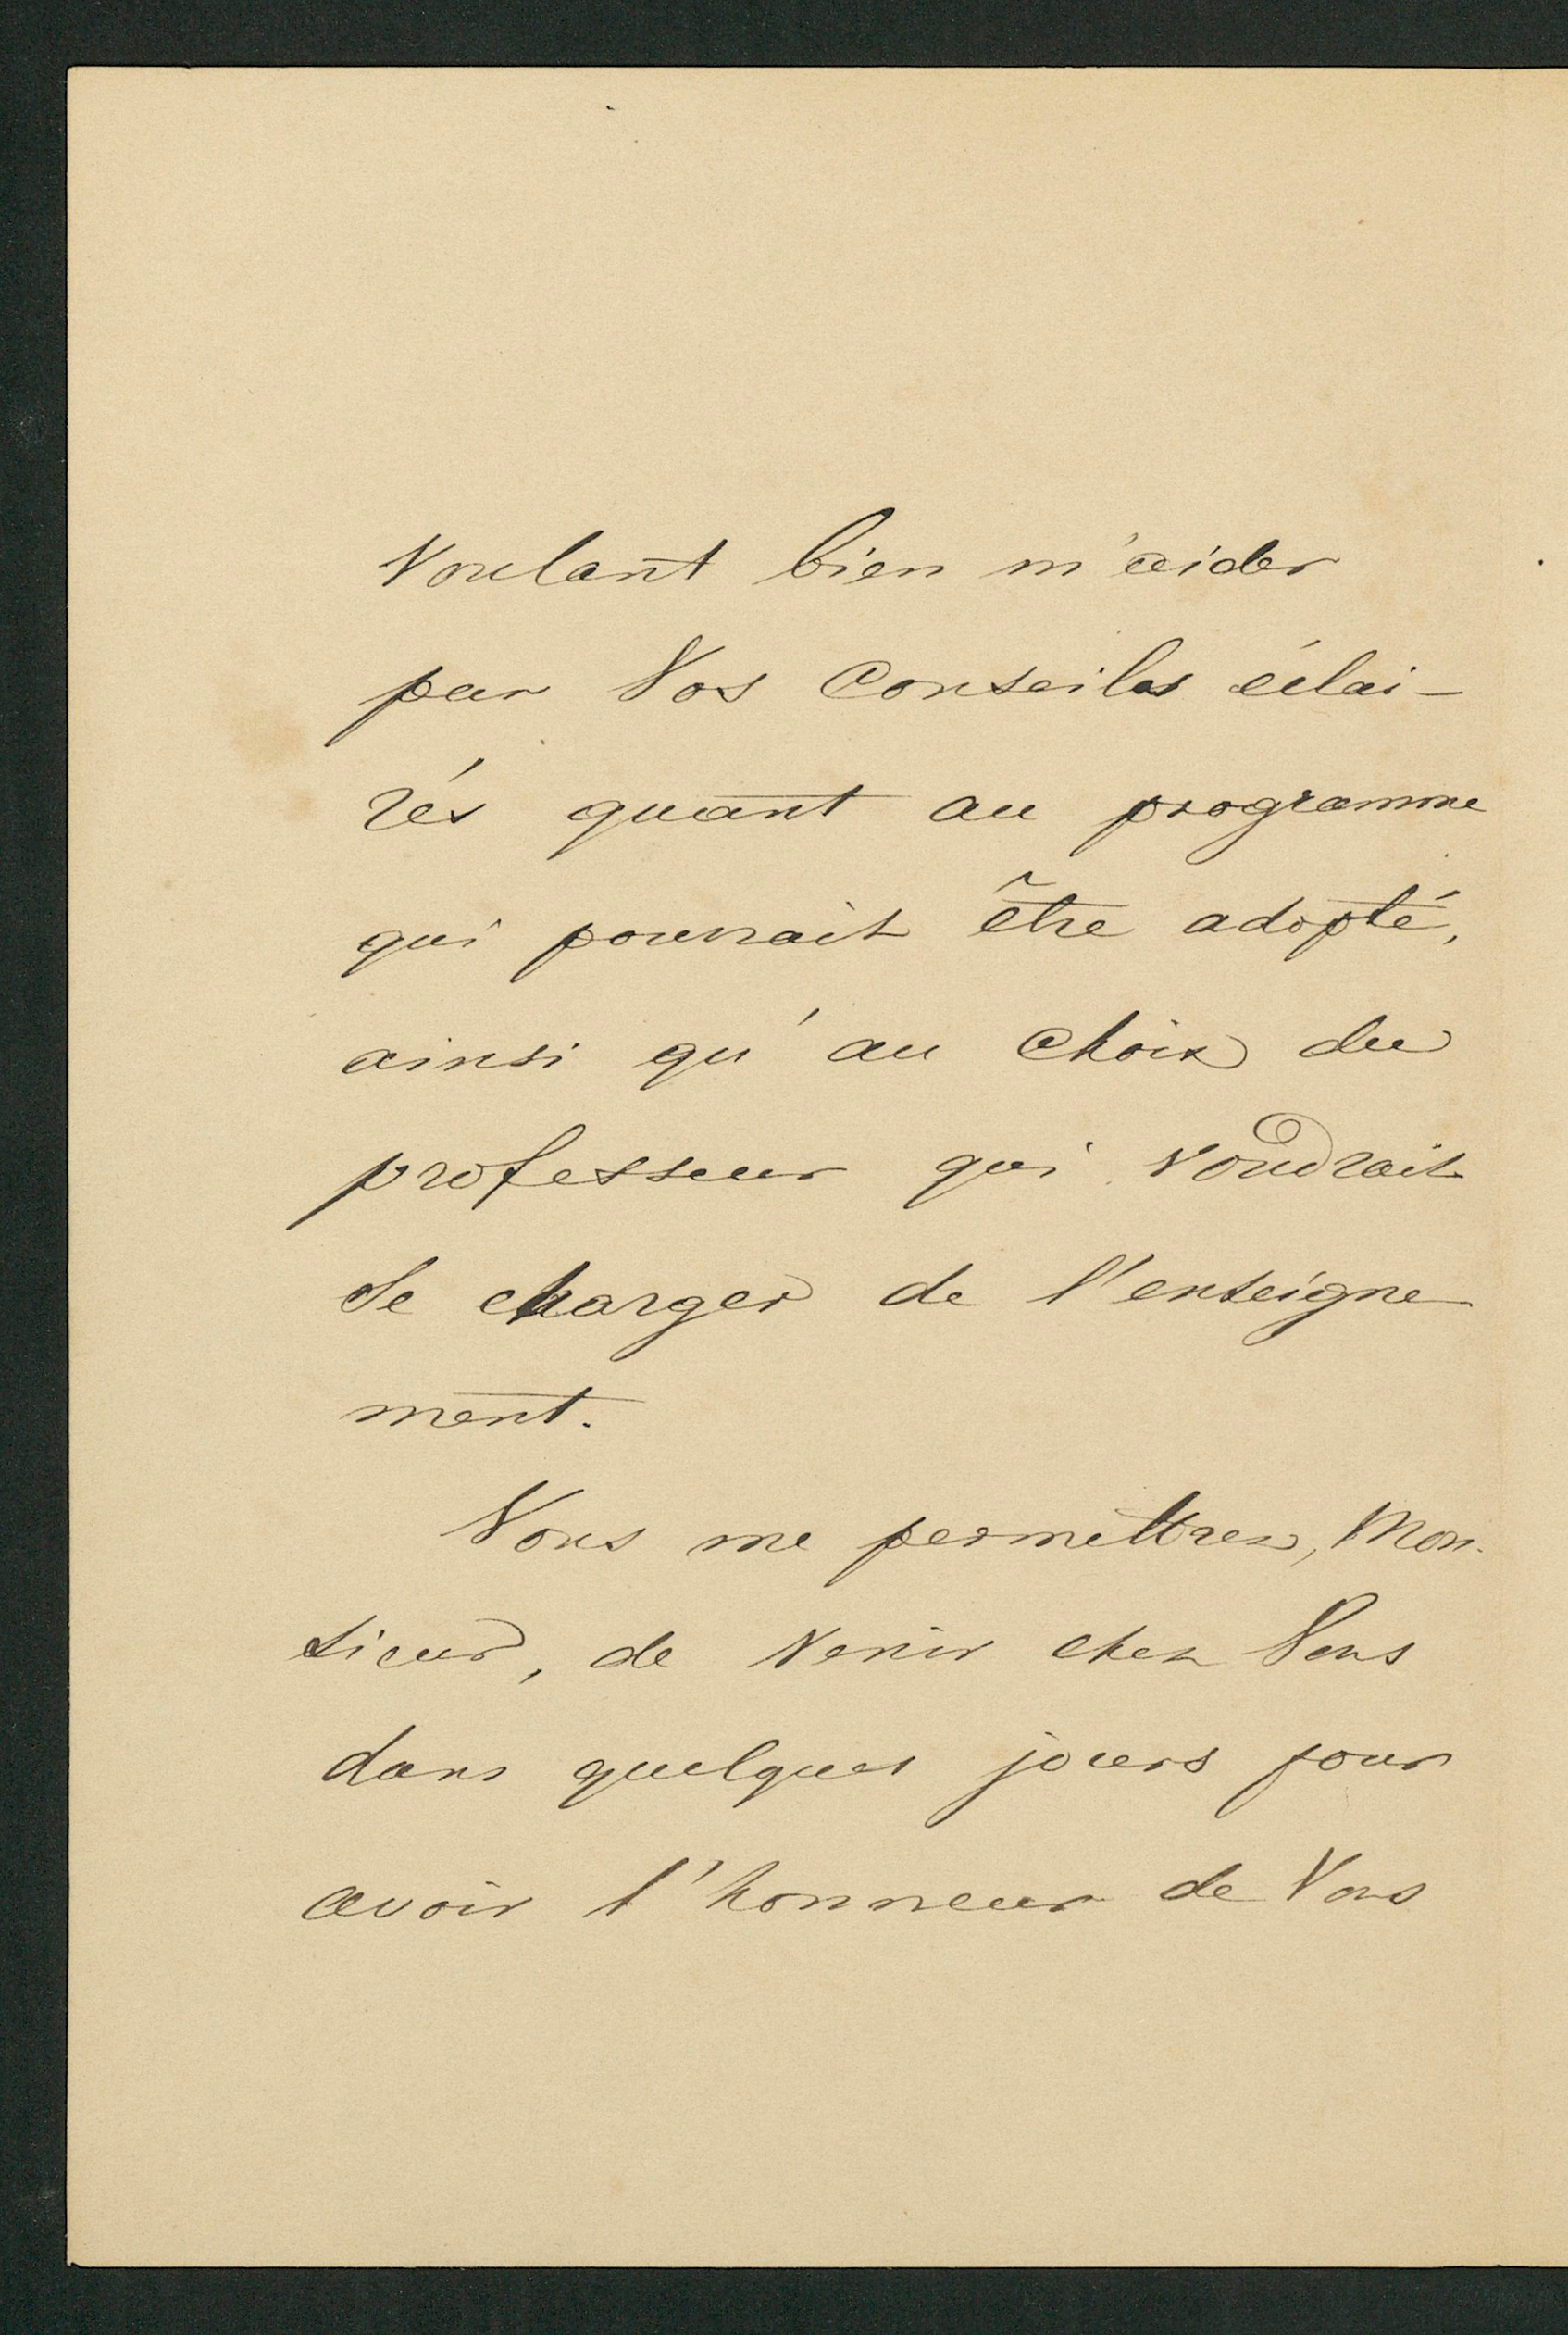 Voulant bien m'aider
par Vos Conseils éclai-
rés quant au programme
qui pourrait être adopté,
ainsi qu'au choix du
professeur qui voudrait
se charger de l'enseigne-
ment.
Vous me permettrez, Mon-
sieur, de venir chez Vous
dans quelques jours pour
avoir l'honneur de Vous